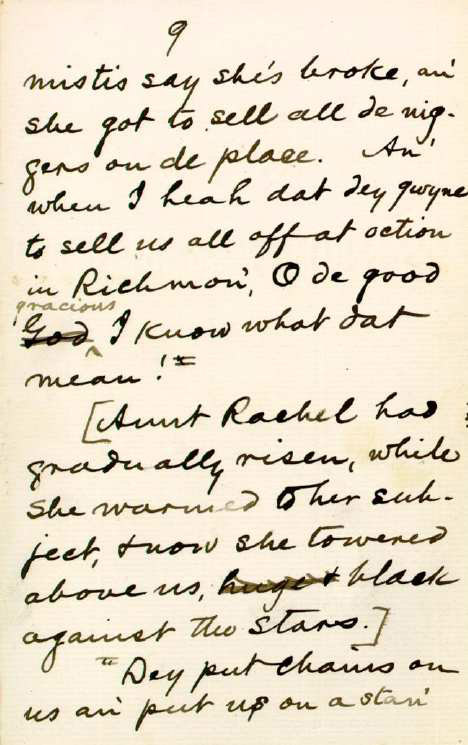 9
mistis say she's broke, an'
she got to sell all de nig-
gers on de place. An'
when I heah dat dey gwyne
to sell us all off at oction
in Richmon', O de good
gracious
God I know what dat
mean!"
[Aunt Rachel had
gradually risen, while
she warmed to her sub-
ject, & now she towered
above us, huge & black
against the stars.]
"Dey put chains on
us an' put us on a stan'